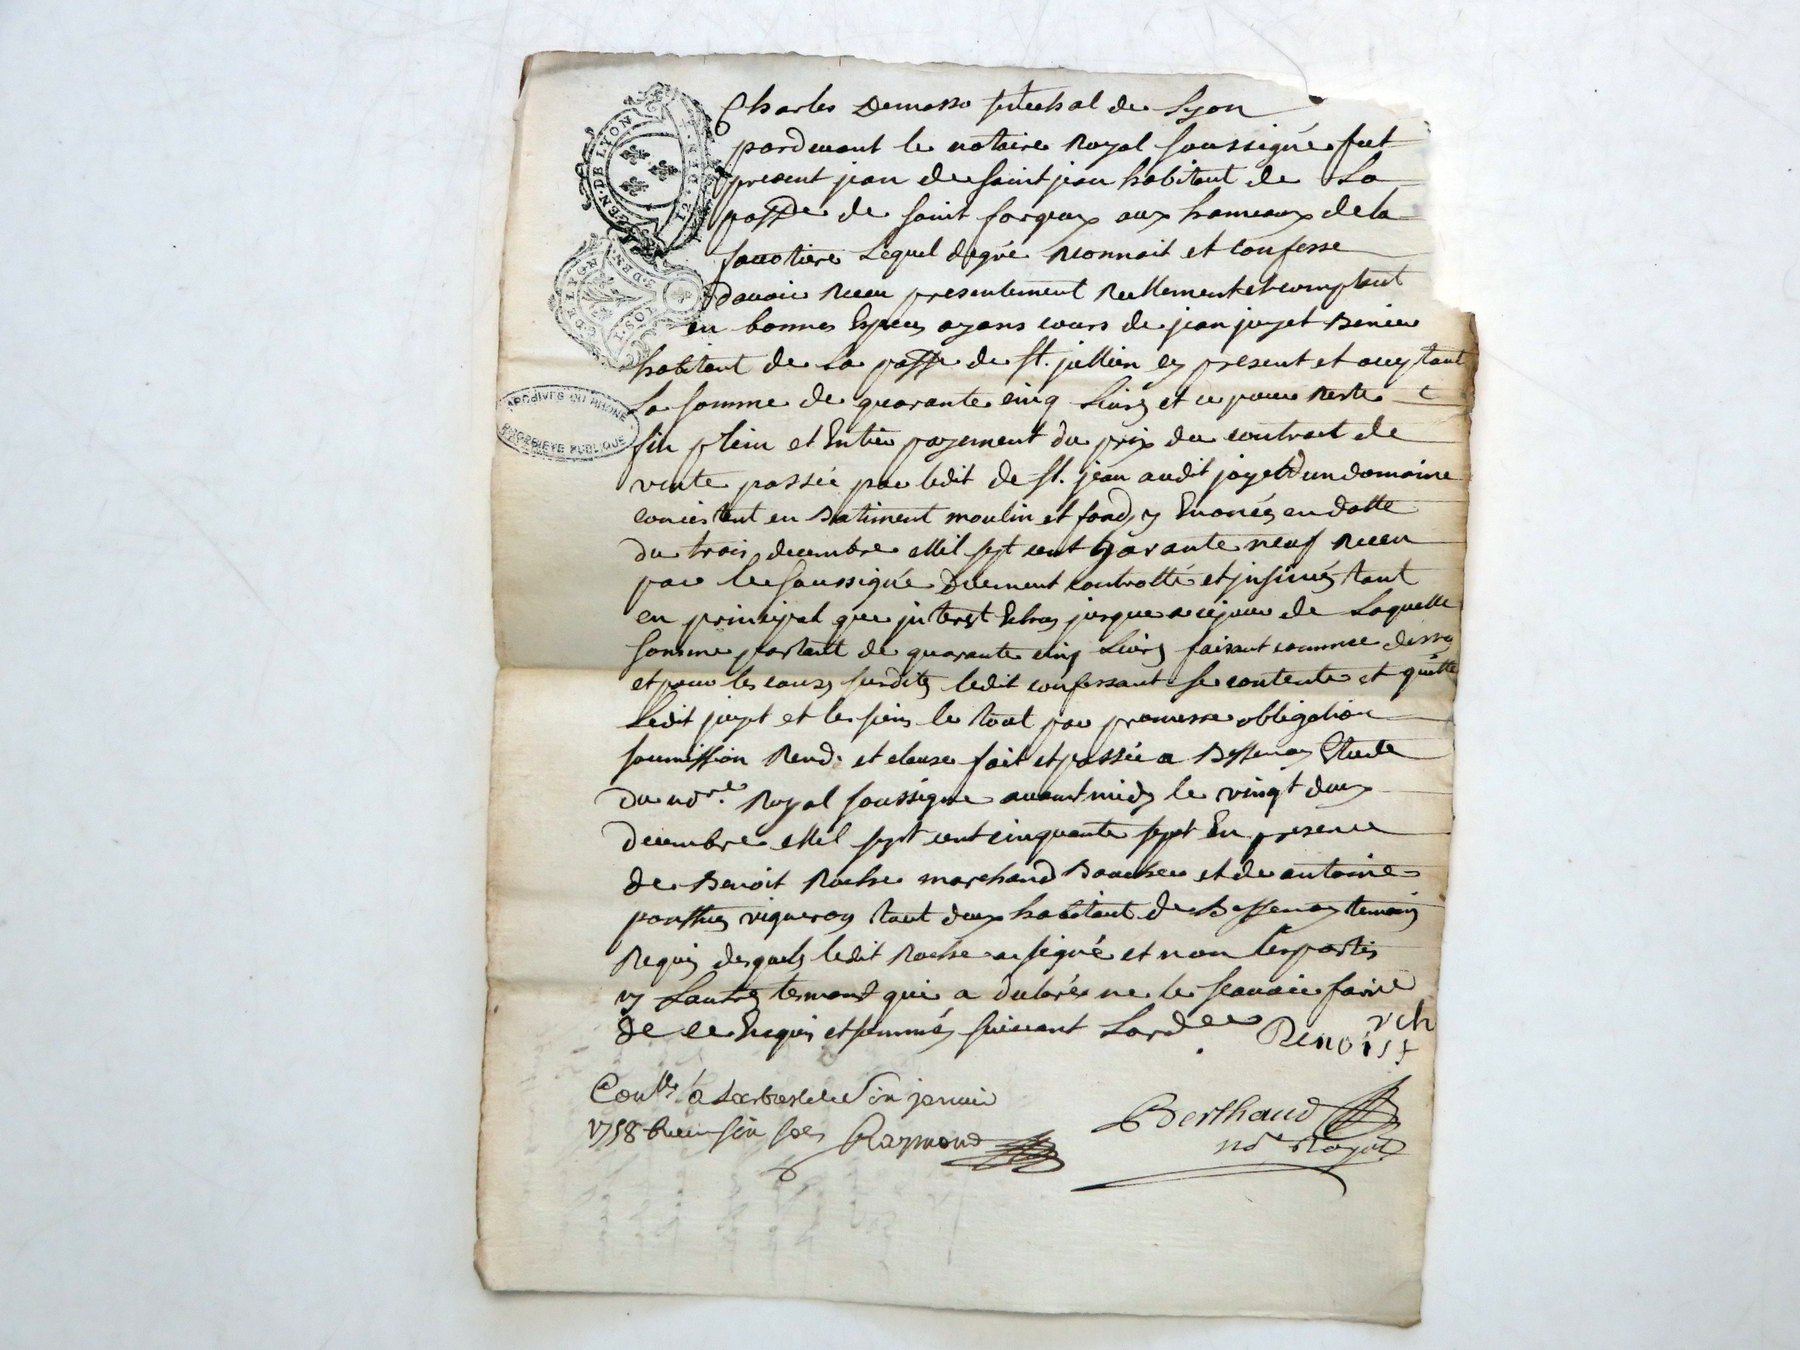 Charles Demasso senechal de Lyon
pardevant le notaire Royal soussigné fut
present jean de saint jean habitant de La
de saint forgeux aux hameaux dela
Lequel degré reconnait et confesse
davoir Receu presentement Reellement et comptant
en bonnes Especes ayans cours de jean joyet
habitant de La de st. jullien present et acceptant
La somme de quarante cinq Livres et ce pour Reste
fin plein et Entier payement du prix du contract de
vente passée par ledit de st. jean audit joyet dun domaine
concistent en Batiment moulin et fond y Enoncés en datte
du trois decembre Mil sept cent quarante neuf Receu
par le soussigné Duement controllé et jnsinué tant
en principal que jnterest jusque a ce jour de Laquelle
somme partant de quarante cinq Livres faisant comme dessus
et pour les causes susdites ledit confessant se contente et quitte
Ledit joyet et les siens le tout par promesse obligation
soumission Rend. et clause fait et passée a Bessenay Etude
du nore. Royal soussigné avant midy le vingt deux
decembre Mil sept cent cinquante sept En presence
de Benoit Roche marchand Boucher et de antoine
vigneron tout deux habitant de Bessenay temoins
Requis desquels ledit Roche a signé et non les parties
ny Lautre temoins qui a déclarés ne le scavoir faire
de ce Enquis et sommés suivant Lord
Benoist
Conllé a Larbresle le Six janvier
1758 Receu six sols Raymond
Berthaud
nore Royal
GEN. DE LYON
ARCHIVES DU RHONE
PROPRIETE PUBLIQUE